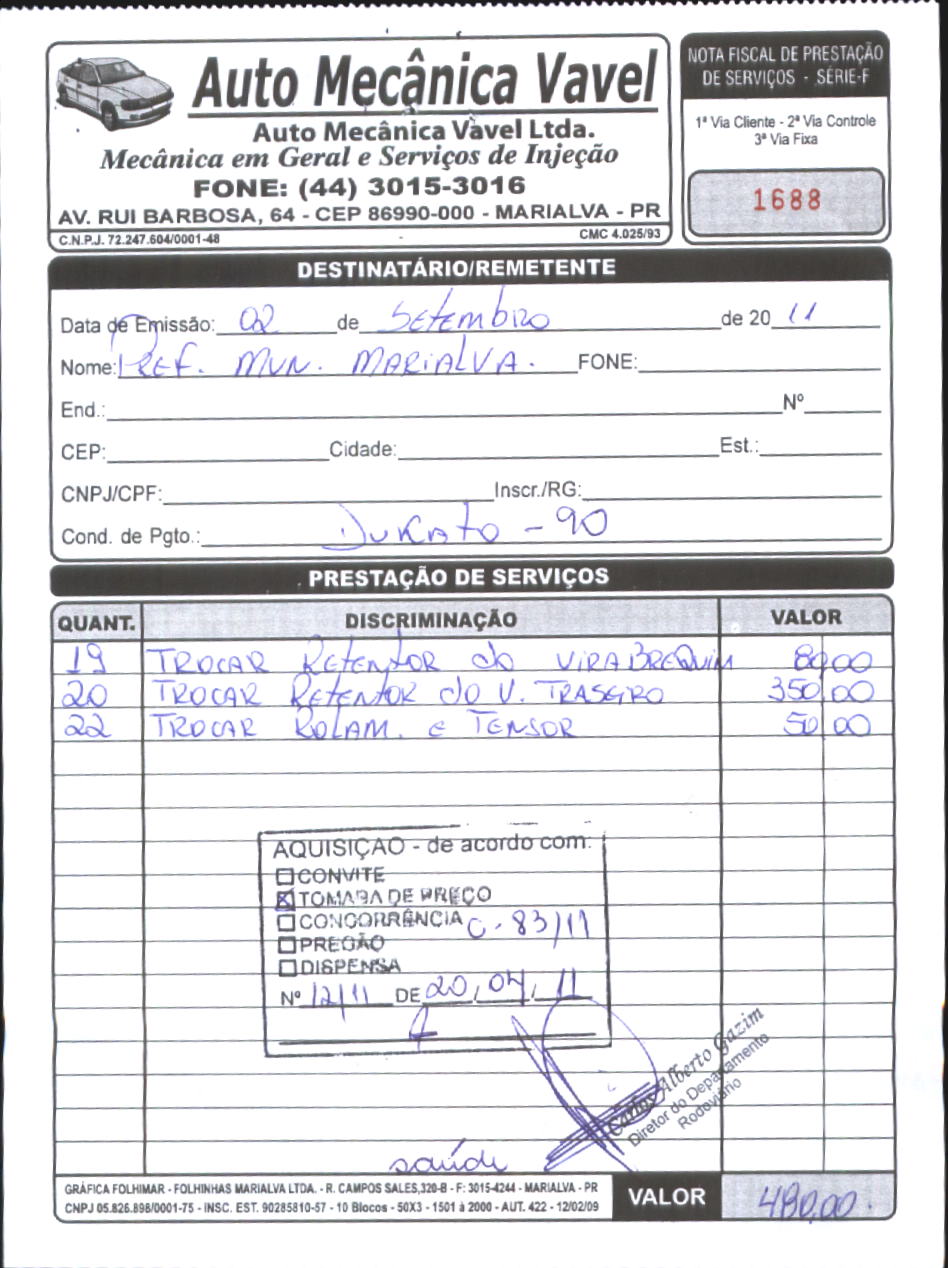 Auto Mecânica Vavel
Auto Mecânica Vavel Ltda.
Mecânica em Geral e Serviços de Injeção
FONE: (44) 3015-3016
AV. RUI BARBOSA, 64 - CEP 86990-000 - MARIALVA - PR
C.N.P.J. 72.247.604/0001-48 CMC 4.025/93
NOTA FISCAL DE PRESTAÇÃO
DE SERVIÇOS - SÉRIE-F
1ª Via Cliente - 2ª Via Controle
3ª Via Fixa
1688
DESTINATÁRIO/REMETENTE
Data de Emissão: 02 de Setembro de 20 11
Nome: PREF. MUN. MARIALVA. FONE:
End.: Nº
CEP: Cidade: Est.:
CNPJ/CPF: Inscr./RG:
Cond. de Pgto.: Dukato - 90
PRESTAÇÃO DE SERVIÇOS
QUANT. DISCRIMINAÇÃO VALOR
19 TROCAR RETENTOR do VIRABREQUIM 80,00
20 TROCAR RETENTOR do V. TRASEIRO 350,00
22 TROCAR ROLAM. E TENSOR 50,00
AQUISIÇAO - de acordo com:
CONVITE
TOMADA DE PREÇO
CONCORRÊNCIA C. 83/11
PREGÃO
DISPENSA
Nº 12/11 DE 20, 04, 11
Carlos Alberto Gazim
Diretor do Departamento
Rodoviário
saúde
GRÁFICA FOLHIMAR - FOLHINHAS MARIALVA LTDA. - R. CAMPOS SALES,320-B - F: 3015-4244 - MARIALVA - PR
CNPJ 05.826.898/0001-75 - INSC. EST. 90285810-57 - 10 Blocos - 50X3 - 1501 à 2000 - AUT. 422 - 12/02/09
VALOR 480,00